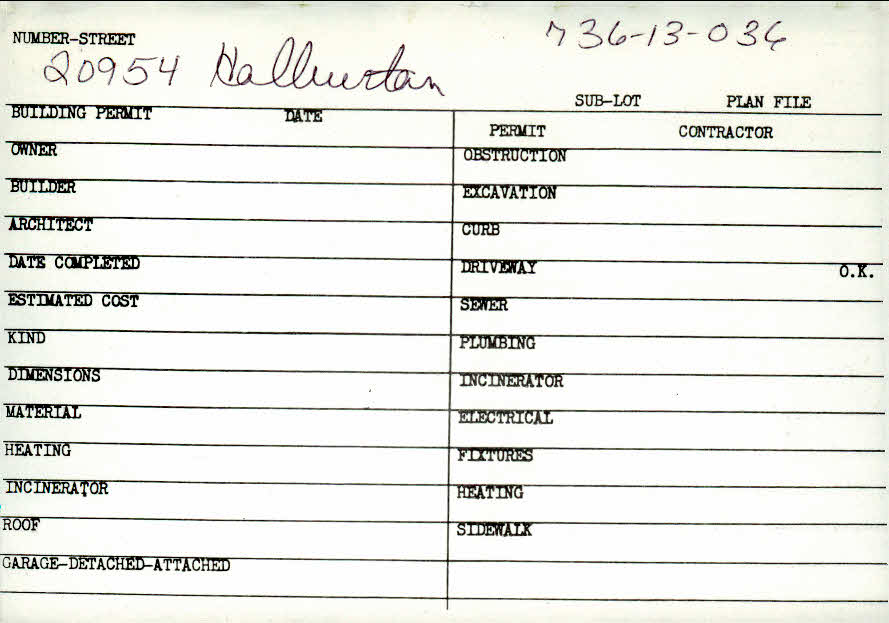 NUMBER-STREET 736-13-036
20954 Halburton
SUB-LOT PLAN FILE
BUILDING PERMIT DATE
PERMIT CONTRACTOR
OWNER OBSTRUCTION
BUILDER EXCAVATION
ARCHITECT CURB
DATE COMPLETED DRIVEWAY O.K.
ESTIMATED COST SEWER
KIND PLUMBING
DIMENSIONS INCINERATOR
MATERIAL ELECTRICAL
HEATING FIXTURES
INCINERATOR HEATING
ROOF SIDEWALK
GARAGE-DETACHED-ATTACHED